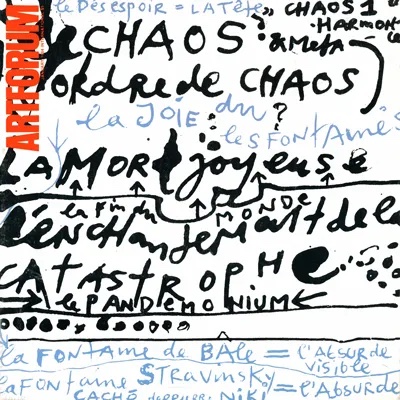 ARTFORUM
le Desespoir = LA Tête
CHAOS 1
HARMONI
CHAOS & Meta
ordre de CHAOS
la JOIE du ?
les FONTAINES
LA MORt joyeuse
la Fin du MONDE
l'ENCHANTEMENT de la
CATASTROPHe
le PANDEMONIUM
la FONTAINE de BALe = l'ABSURDE
VISIBLE
la FONTAINE STRAVINSKY = l'ABSURDe
CACHÉ derrière NiKi